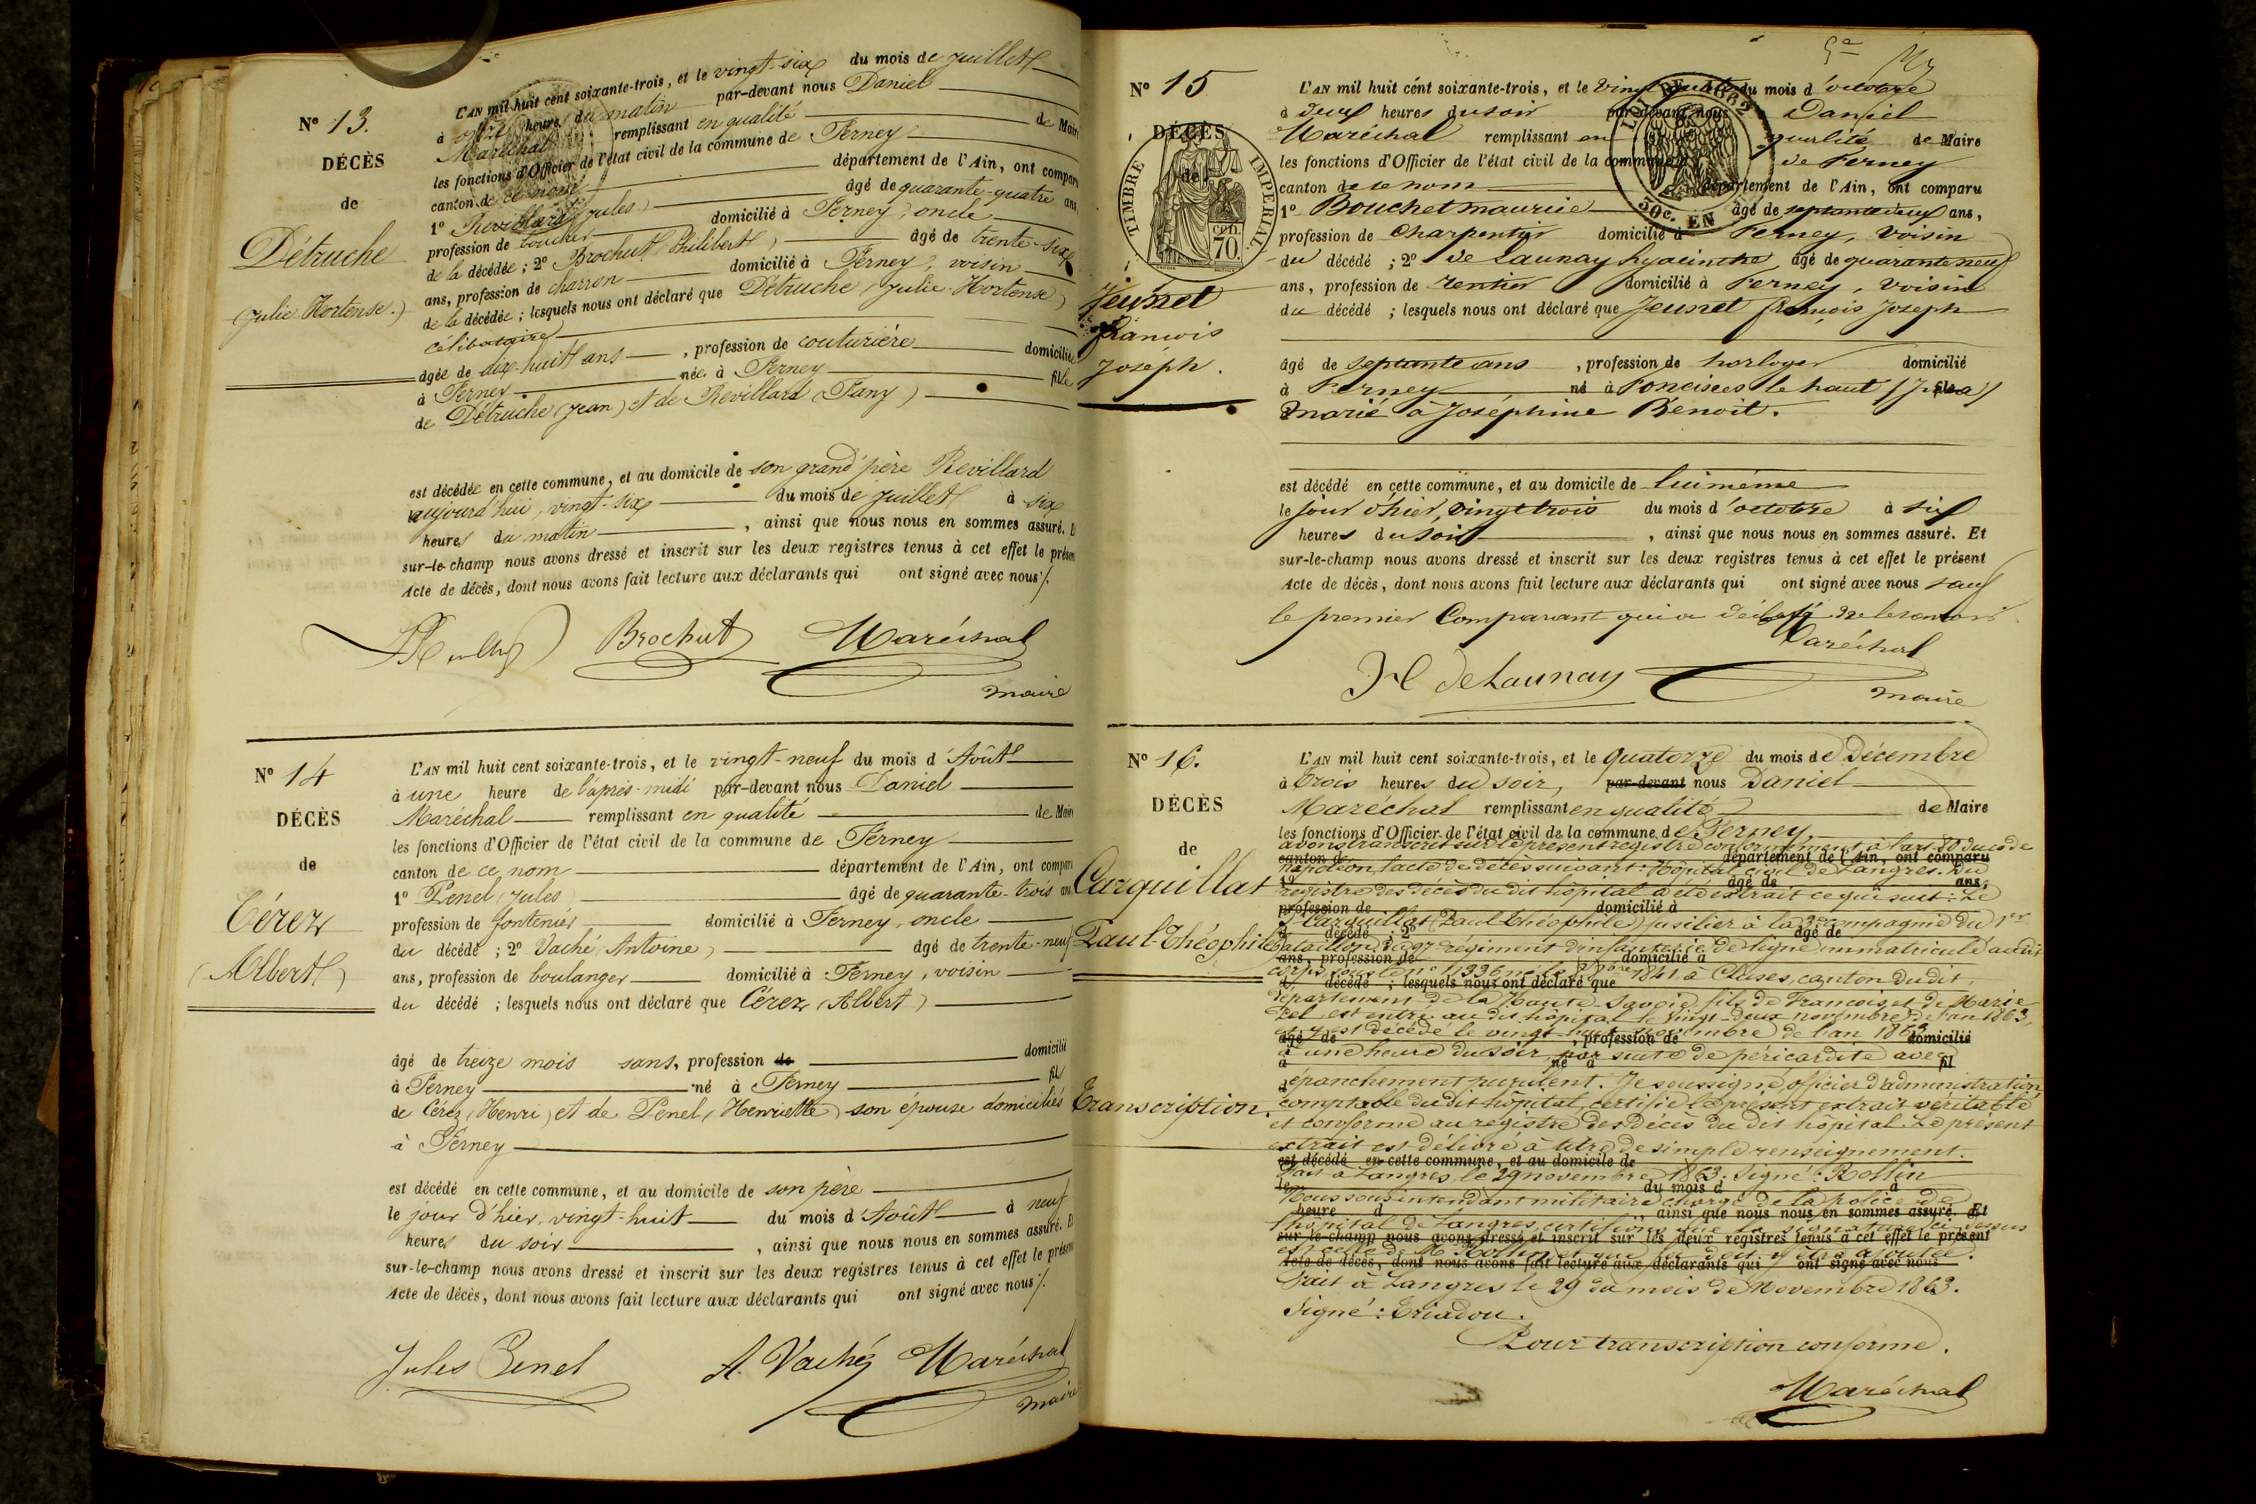 N° 13.
DÉCÈS
de
Détruche
(Julie Hortense.)
L'AN mil huit cent soixante-trois, et le vingt-six du mois de juillet
à onze heures du matin par-devant nous Daniel
Maréchal remplissant en qualité de Maire
les fonctions d'Officier de l'état civil de la commune de Ferney
canton de ce nom département de l'Ain, ont comparu
1° Revillard (Jules) âgé de quarante-quatre ans,
profession de boucher domicilié à Ferney, oncle
de la décédée ; 2° Brochut (Philibert) âgé de trente-six
ans, profession de charron domicilié à Ferney, voisin
de la décédée ; lesquels nous ont déclaré que Détruche (Julie-Hortense)
célibataire
âgée de dix-huit ans, profession de couturière domiciliée
à Ferney née à Ferney fille
de Détruche (Jean) et de Revillard (Fany)
est décédée en cette commune, et au domicile de son grand père Revillard
aujourd'hui, vingt-six du mois de juillet à six
heures du matin, ainsi que nous nous en sommes assuré. E
sur-le-champ nous avons dressé et inscrit sur les deux registres tenus à cet effet le présen
Acte de décès, dont nous avons fait lecture aux déclarants qui ont signé avec nous /.
Brochut Maréchal
maire
N° 14
DÉCÈS
de
Cérez
(Albert)
L'AN mil huit cent soixante-trois, et le vingt-neuf du mois d'Août
à une heure de l'après-midi par-devant nous Daniel
Maréchal remplissant en qualité de Maire
les fonctions d'Officier de l'état civil de la commune de Ferney
canton de ce nom département de l'Ain, ont comparu
1° Penel (Jules) âgé de quarante-trois ans
profession de fontenier domicilié à Ferney, oncle
du décédé ; 2° Vaché (Antoine) âgé de trente-neuf
ans, profession de boulanger domicilié à Ferney, voisin
du décédé ; lesquels nous ont déclaré que Cérez (Albert)
âgé de treize mois sans, profession de domicilié
à Ferney né à Ferney fils
de Cérez (Henri) et de Penel (Henriette) son épouse domiciliés
à Ferney
est décédé en cette commune, et au domicile de son père
le jour d'hier, vingt-huit du mois d'Août à neuf
heures du soir, ainsi que nous nous en sommes assuré. E
sur-le-champ nous avons dressé et inscrit sur les deux registres tenus à cet effet le présen
Acte de décès, dont nous avons fait lecture aux déclarants qui ont signé avec nous /.
Jules Penel A. Vaché Maréchal
maire
N° 15
DÉCÈS
de
TIMBRE IMPÉRIAL
CEN. 70.
LOI DE 1862
50c. EN
Jeunet
francois
Joséph.
L'AN mil huit cent soixante-trois, et le vingt quatre du mois d'octobre
à deux heures du soir par-devant nous Daniel
Maréchal remplissant en qualité de Maire
les fonctions d'Officier de l'état civil de la commune de Ferney
canton de ce nom département de l'Ain, ont comparu
1° Bouchet maurice âgé de septante deux ans,
profession de Charpentier domicilié à Ferney, Voisin
du décédé ; 2° de Launay hyacinthe, âgé de quarante neuf
ans, profession de rentier domicilié à Ferney, Voisin
du décédé ; lesquels nous ont déclaré que Jeunet françois Joseph
âgé de septante ans, profession de horloger domicilié
à Ferney né à Foncinees le haut (Jura)
marié à Joséphine Benoit.
est décédé en cette commune, et au domicile de lui même
le jour d'hier, vingt trois du mois d'octobre à six
heures du soir, ainsi que nous nous en sommes assuré. Et
sur-le-champ nous avons dressé et inscrit sur les deux registres tenus à cet effet le présent
Acte de décès, dont nous avons fait lecture aux déclarants qui ont signé avec nous sauf
le premier Comparant qui a déclaré ne le savoir
Maréchal
H de Launay
maire
N° 16.
DÉCÈS
de
Carquillat
Paul-Théophile
Transcription.
L'AN mil huit cent soixante-trois, et le quatorze du mois de Décembre
à trois heures du soir, par-devant nous Daniel
Maréchal remplissant en qualité de Maire
les fonctions d'Officier de l'état civil de la commune de Ferney,
avons transcrit sur le présent registre conformément à l'art. 80 du code
canton de département de l'Ain, ont comparu
napoléon l'acte de décès suivant : Hôpital civil de Langres. Du
1° âgé de ans,
registre des décès du dit hôpital a été extrait ce qui suit : Le
profession de domicilié à
Sr Carquillat (Paul Théophile) fusilier à la 2e compagnie du 1er
décédé ; 2° âgé de
Bataillon du 97 régiment d'infanterie de ligne immatriculé au dit
ans, profession de domicilié à
corps sous le n° 11336 né le 1841 à Cluses, canton du dit,
décédé ; lesquels nous ont déclaré que
département de la Haute-Savoie, fils de François et de Marie
est entré au dit hôpital le vingt-deux novembre de l'an 1863,
et y est décédé le vingt-huit novembre de l'an 1863
âgé de, profession de domicilié
à une heure du soir, par suite de péricardite avec
à né à fil
épanchement purulent. Je soussigné officier d'administration
comptable du dit hôpital, certifie le présent extrait véritable
et conforme au registre des décès du dit hôpital. Le présent
extrait est délivré à titre de simple renseignement.
est décédé en cette commune, et au domicile de
Fait à Langres, le 29 novembre 1863. Signé : Rollin
le du mois d à
Nous sous intendant militaire chargé de la police de
heure d, ainsi que nous nous en sommes assuré. Et
l'hôpital de Langres, certifions que la signature ci-dessus
sur-le-champ nous avons dressé et inscrit sur les deux registres tenus à cet effet le présent
est celle de M. Rollin et que foi doit y être ajoutée.
Acte de décès, dont nous avons fait lecture aux déclarants qui ont signé avec nous
Fait à Langres le 29 du mois de Novembre 1863.
Signé : Triadou.
Pour transcription conforme.
Maréchal